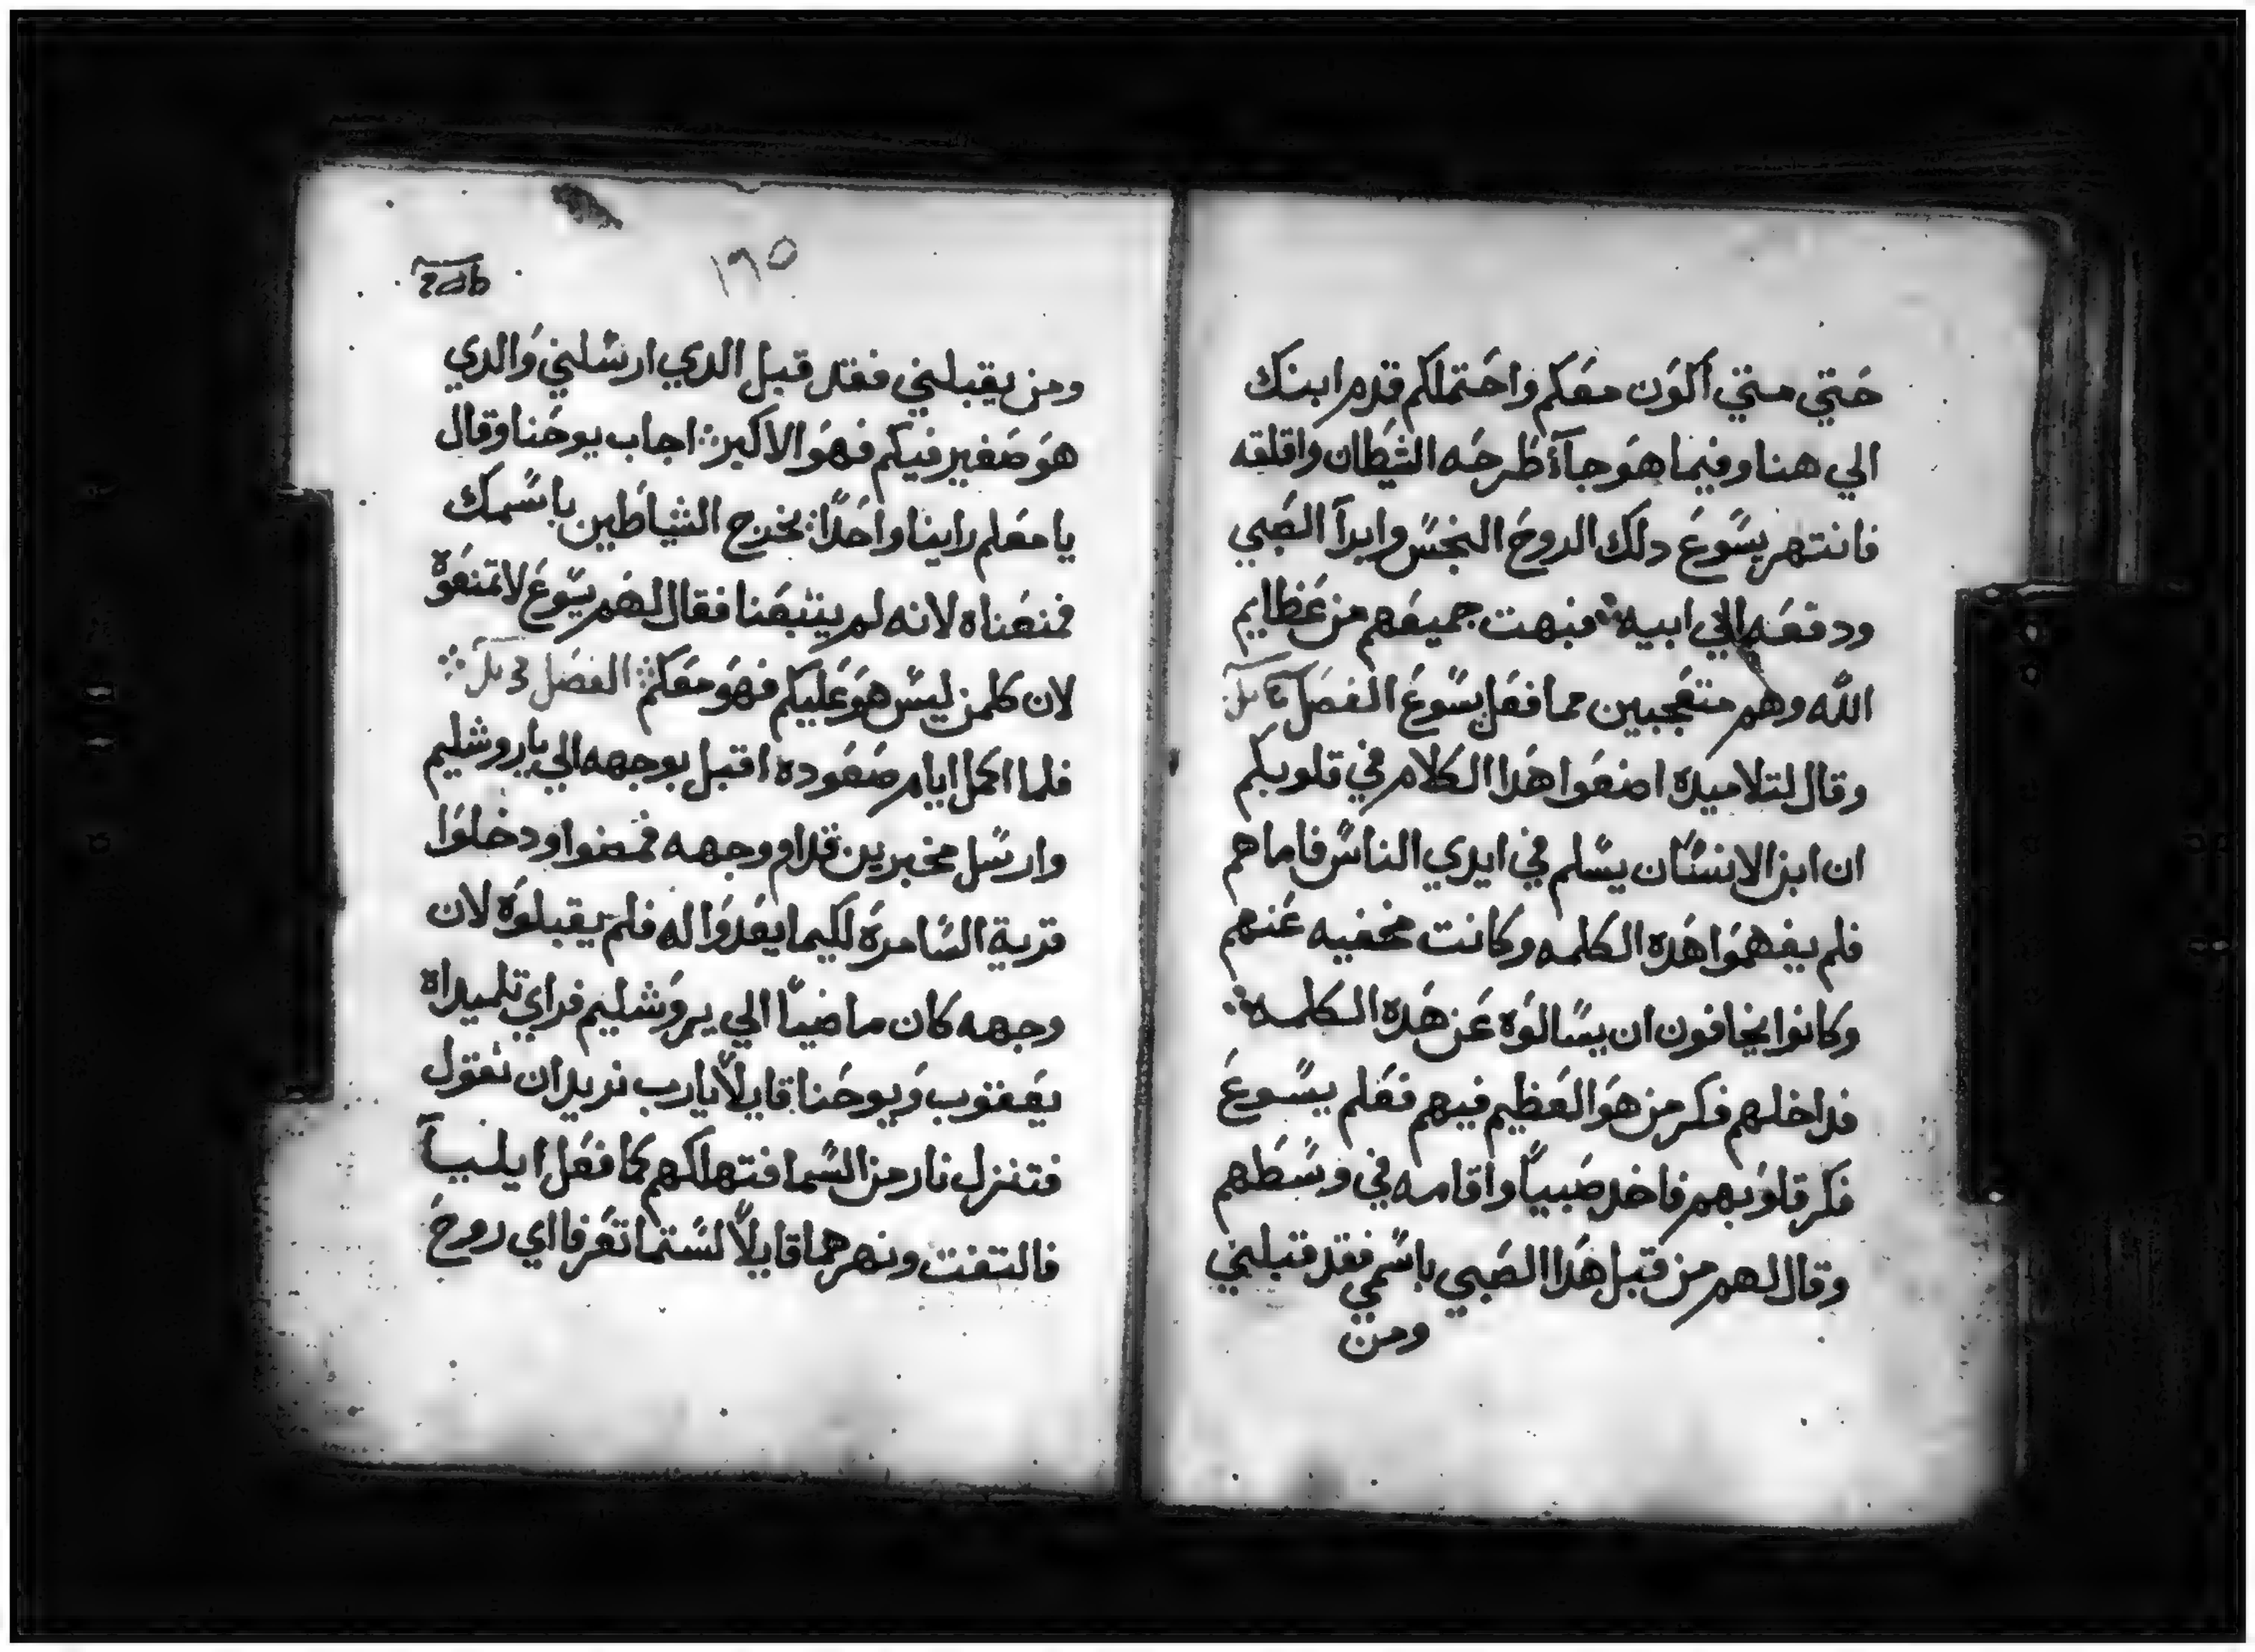 حتي متي اكون معكم واحتملكم قدم ابنك
الي هنا وفيما هو جآءَ طرحه الشيطان واقلقه
فانتهر يسوع دلك الروح النجس وابرآ الصبي
ودفعه الي ابيه فبهت جميعهم من عظايم
الله وهم متعجبين مما فعل يسوع الفصل
وقال لتلاميده اضعوا هدا الكلام في قلوبكم
ان ابن الانسان يسلم في ايدي الناس فاما هم
فلم يفهموا هده الكلمه وكانت مخفيه عنهم
وكانوا يخافون ان يسالوه عن هده الكلمه
فداخلهم فكر من هو العظيم فيهم فعلم يسوع
فكر قلوبهم فاخد صبياً واقامه في وسطهم
وقال لهم من قبل هدا الصبي باسمي فقد قبلني
ومن
١٩٥
ومن يقبلني فقد قبل الدي ارسلني والدي
هو صغير فيكم فهو الاكبر اجاب يوحنا وقال
يا معلم راينا واحداً يخرج الشياطين باسمك
فمنعناه لانه لم يتبعنا فقال لهم يسوع لا تمنعوه
لان كلمن ليس هو عليكم فهو معكم الفصل
فلما اكمل ايام صعوده اقبل بوجهه الي ياروشليم
وارسل مخبرين قدام وجهه فمضوا ودخلوا
قرية السامره لكيما يعدوا له فلم يقبلوه لان
وجهه كان ماضياً الي يروشليم فراي تلميداه
يعقوب ويوحنا قايلاً يارب تريد ان نقول
فتنزل نار من السما فتهلكهم كما فعل ايليآ
فالتفت ونهرهما قايلاً لستما تعرفا اي روح